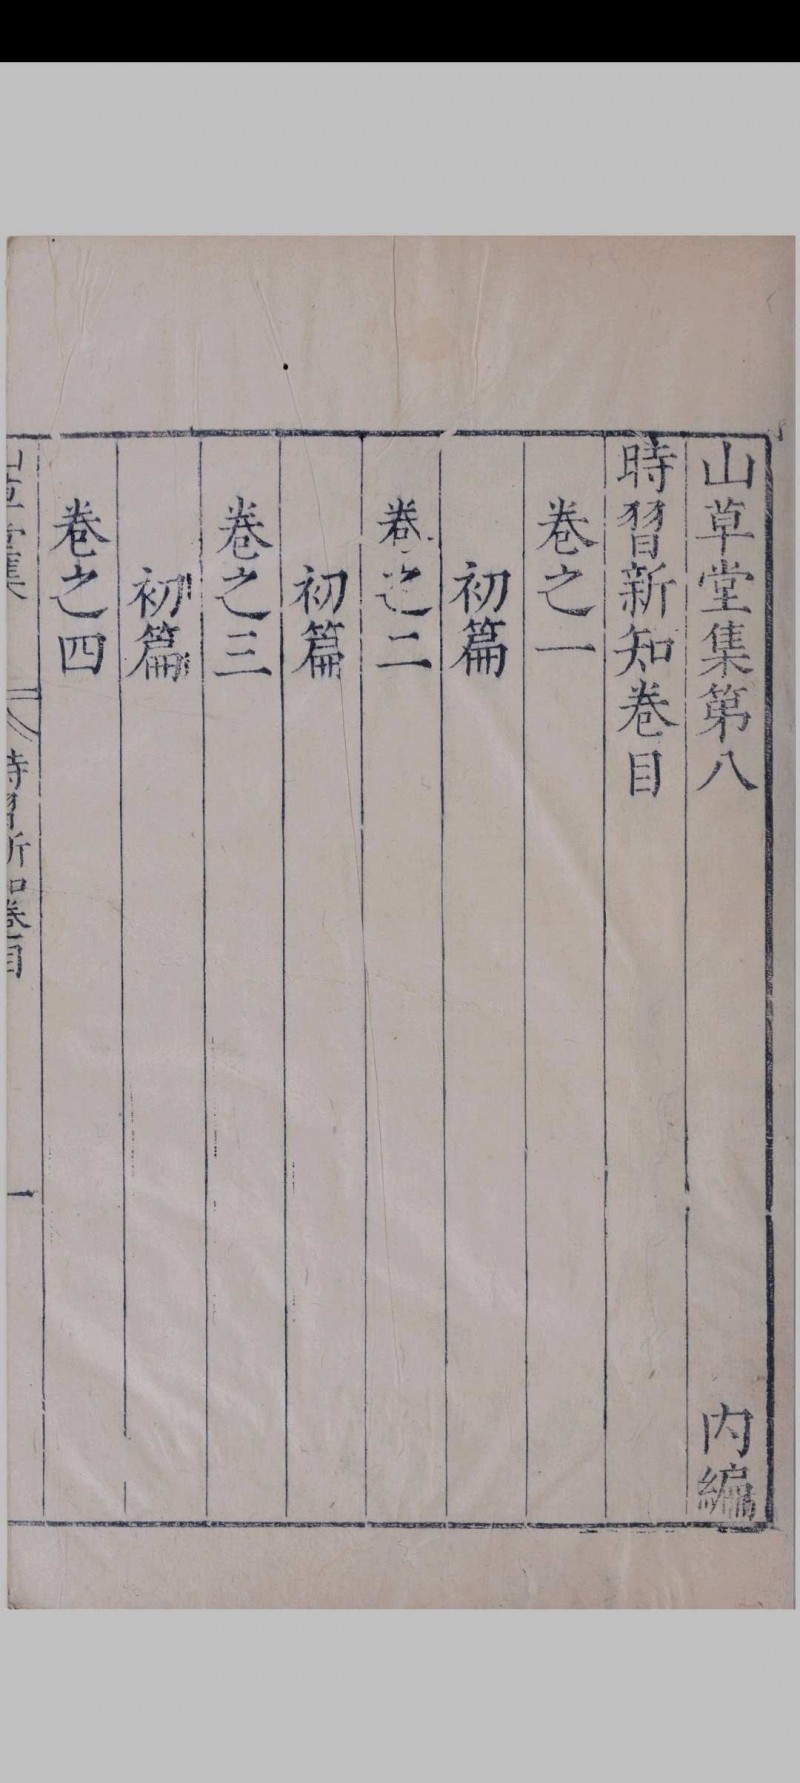 山草堂集第八 內編
時習新知卷目
卷之一
初篇
卷之二
初篇
卷之三
初篇
卷之四
山草堂集
時習新知卷目
一